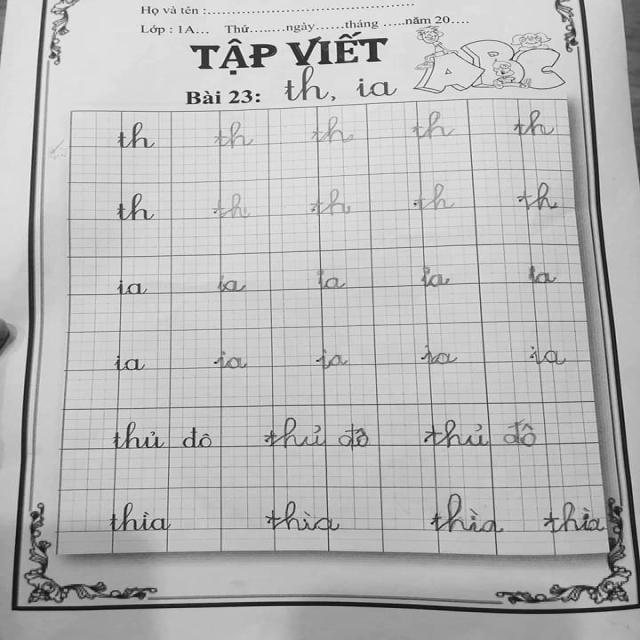 Họ và tên :.......................................................
Lớp : 1A... Thứ.........ngày.......tháng .....năm 20....
TẬP VIẾT
ABC
Bài 23: th, ia
th th th th th
th th th th th
ia ia ia ia ia
ia ia ia ia ia
thủ đô thủ đô thủ đô
thìa thìa thìa thìa